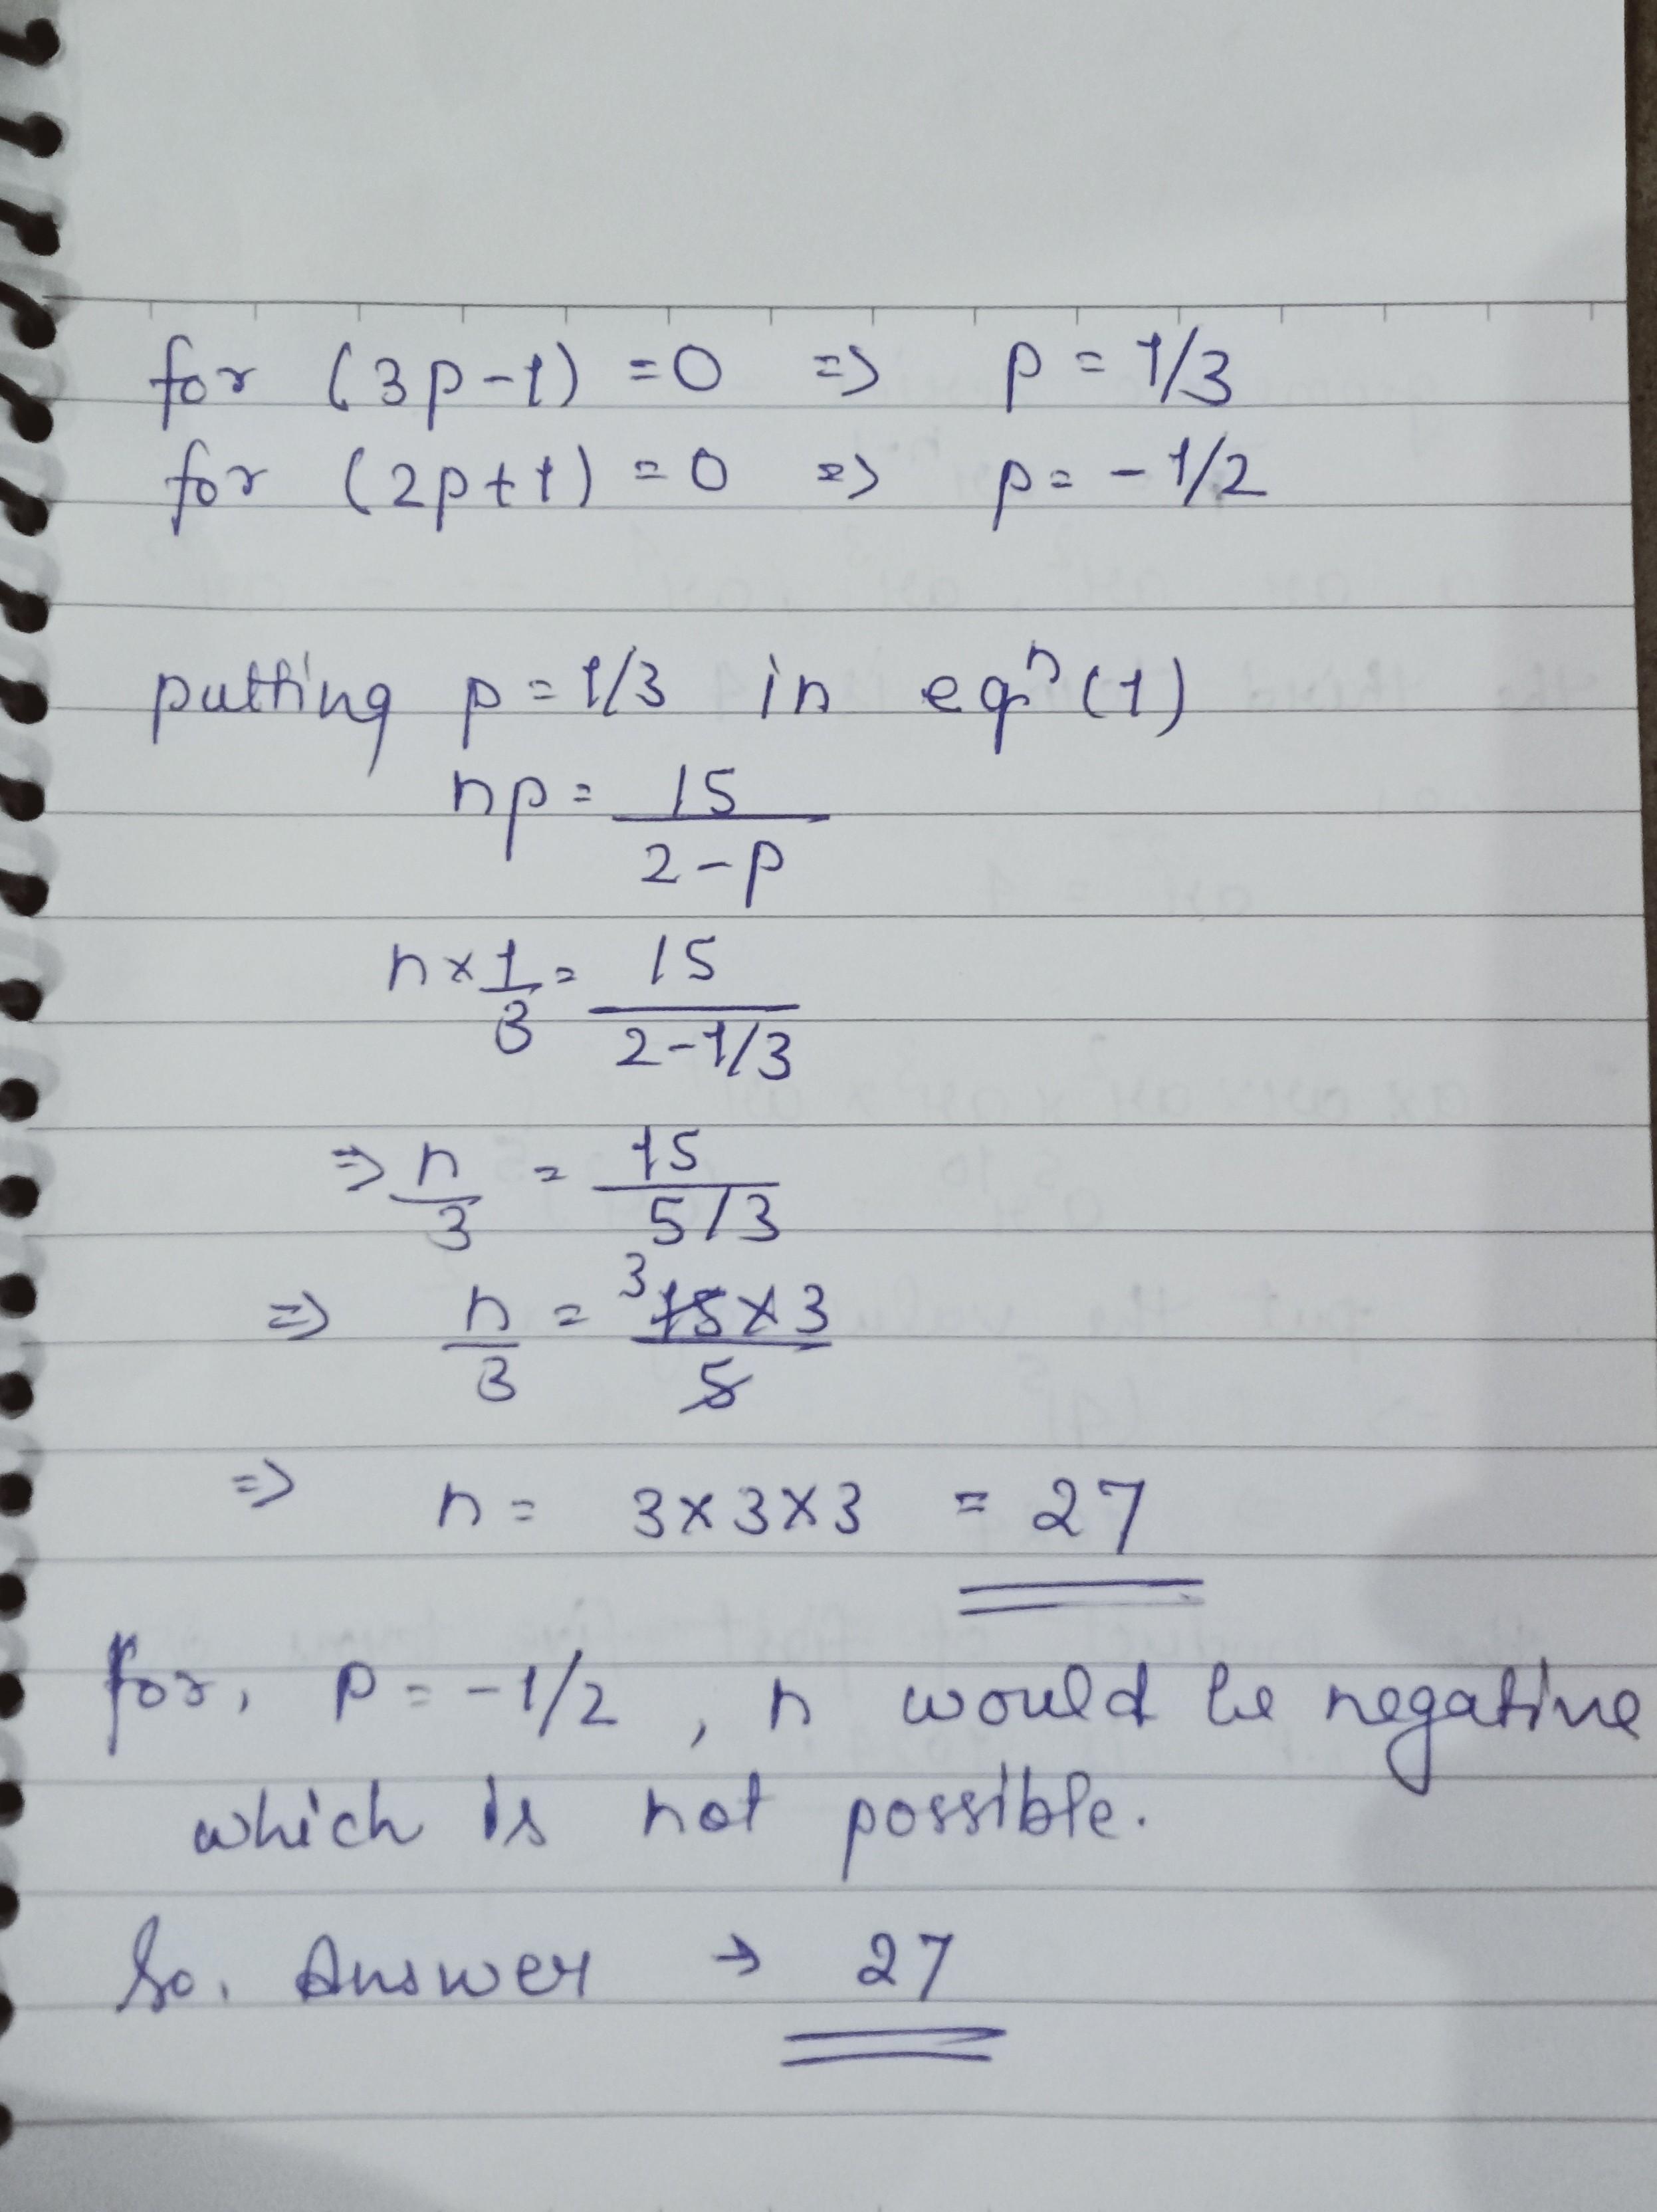 for (3p-1) = 0 => p = 1/3
for (2p+1) = 0 => p = -1/2
putting p = 1/3 in eqⁿ(1)
np = 15
2-p
n × 1/3 = 15
2-1/3
=> n/3 = 15
5/3
=> n/3 = ³15×3
5
=> n = 3×3×3 = 27
for, p = -1/2, n would be negative
which is not possible.
So, Answer → 27